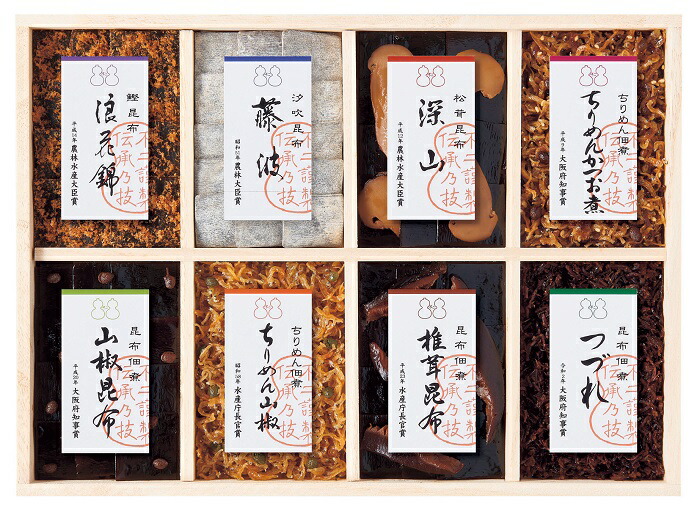 鰹昆布
浪花錦
平成14年 農林水産大臣賞
不二謹製
伝承乃技
汐吹昆布
藤波
昭和51年 農林大臣賞
松茸昆布
深山
平成12年 農林水産大臣賞
不二謹製
伝承乃技
ちりめん佃煮
ちりめんかつお煮
平成9年 大阪府知事賞
不二謹製
伝承乃技
昆布佃煮
山椒昆布
平成20年 大阪府知事賞
不二謹製
伝承乃技
ちりめん佃煮
ちりめん山椒
昭和58年 水産庁長官賞
不二謹製
伝承乃技
昆布佃煮
椎茸昆布
平成23年 水産庁長官賞
不二謹製
伝承乃技
昆布佃煮
つづれ
令和2年 大阪府知事賞
不二謹製
伝承乃技